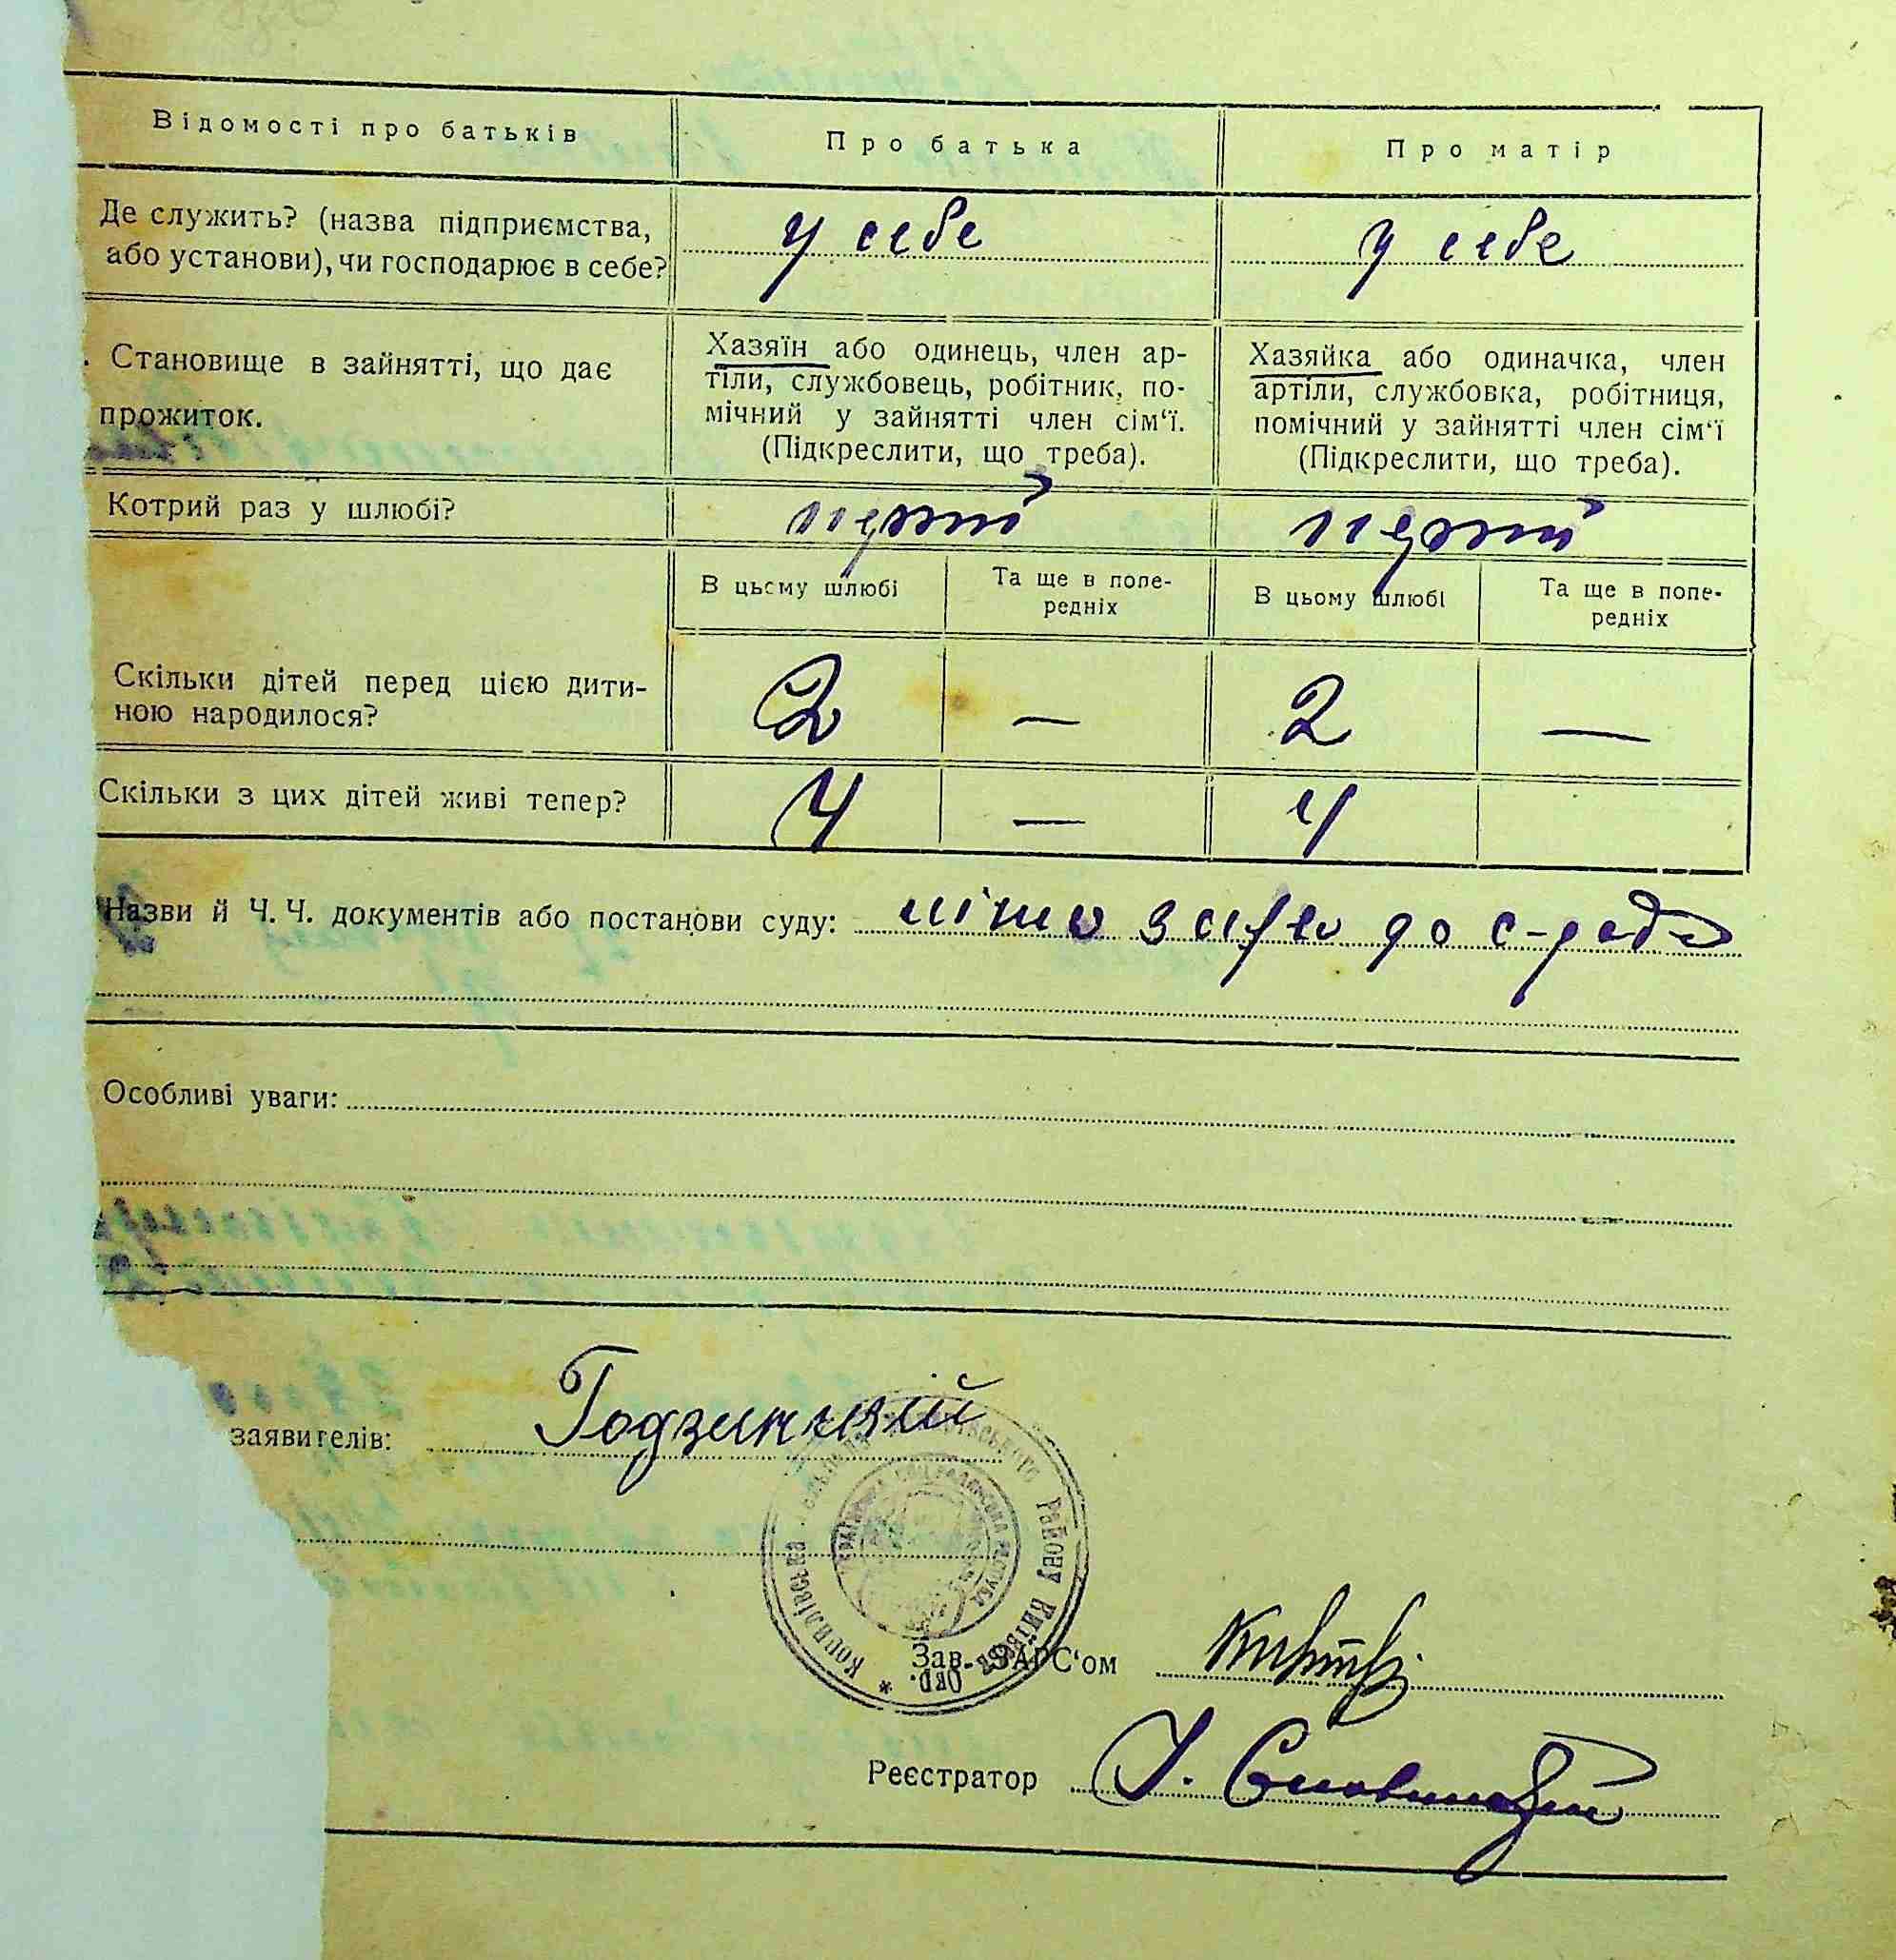 Відомості про батьків Про батька Про матір
Де служить? (назва підприємства, або установи), чи господарює в себе? у себе у себе
. Становище в зайнятті, що дає прожиток.
Хазяїн або одинець, член ар-
тіли, службовець, робітник, по-
мічний у зайнятті член сім'ї.
(Підкреслити, що треба).
Хазяйка або одиначка, член
артіли, службовка, робітниця,
помічний у зайнятті член сім'ї
(Підкреслити, що треба).
Котрий раз у шлюбі?
В цьому шлюбі Та ще в попе-
редніх
В цьому шлюбі Та ще в попе-
редніх
Скільки дітей перед цією дити-
ною народилося? 2 — 2 —
Скільки з цих дітей живі тепер? — 
Назви й Ч. Ч. документів або постанови суду: до с-ради
Особливі уваги:
заявителів: Годзинський
РАЙОНУ КИЇВСЬК. ОКР.
Зав. ЗАГС'ом
Реєстратор